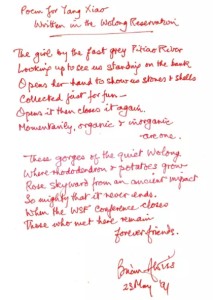 Poem for Yang Xiao
Written in the Wolong Reservation
The girl by the fast grey Pitiao River
Looking up to see us standing on the bank
Opens her hand to show us stones & shells
Collected just for fun —
Opens it then closes it again.
Momentarily, organic & inorganic
are one.
These gorges of the quiet Wolong
Where rhododendron & potatoes grow
Rose skyward from an ancient impact
So mightily that it never ends.
When the WSF Conference closes
Those who met here remain
forever friends.
Brian Aldiss
23 May '91